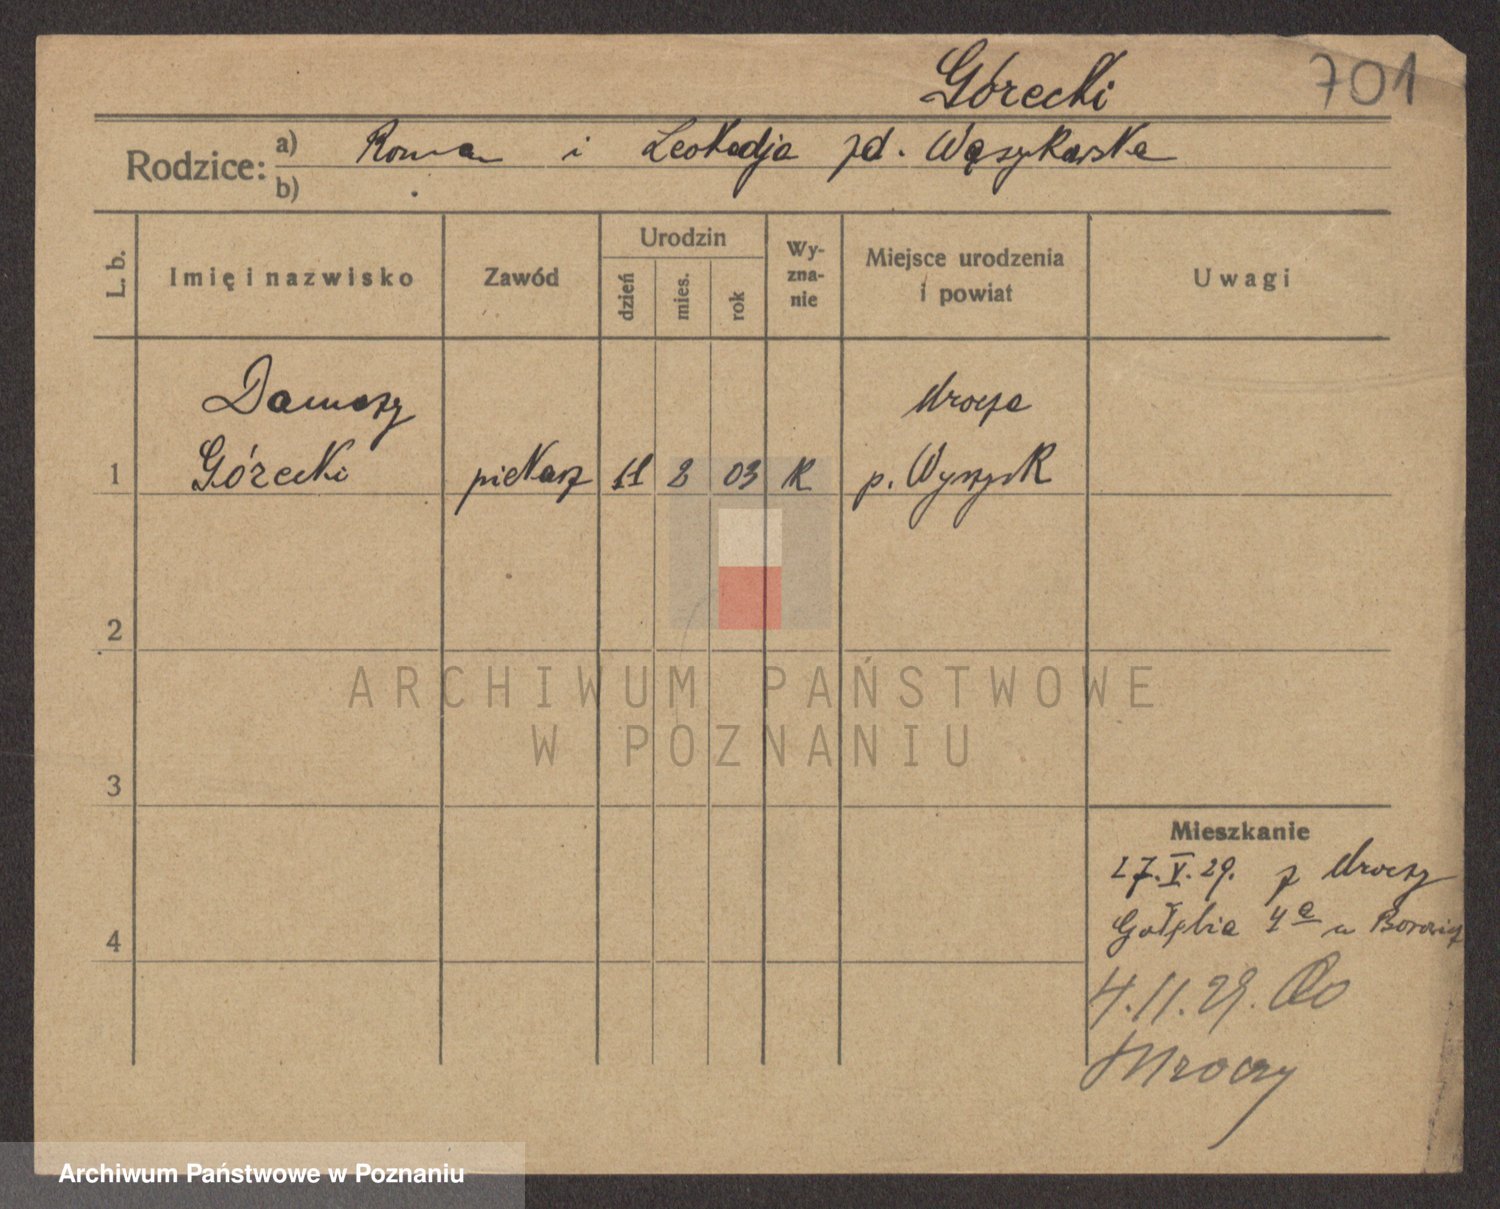 Górecki
701
Rodzice: a) Roman i Leokadja zd. Wąszykowska
b)
L. b.
Imię i nazwisko
Zawód
Urodzin
dzień
mies.
rok
Wy-
zna-
nie
Miejsce urodzenia
i powiat
Uwagi
Damazy Mrocza
1 Górecki piekarz 11 2 03 K p. Wyrzysk
2
3
4
Mieszkanie
27.V.29. z Mroczy
Gołębia 4a u
4.11.29. Do
Mroczy
ARCHIWUM PAŃSTWOWE
W POZNANIU
Archiwum Państwowe w Poznaniu